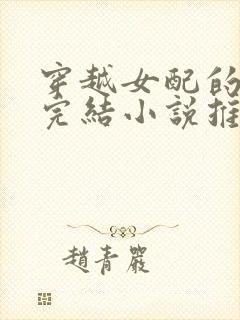 穿越女配的
完結小說推
趙青嚴